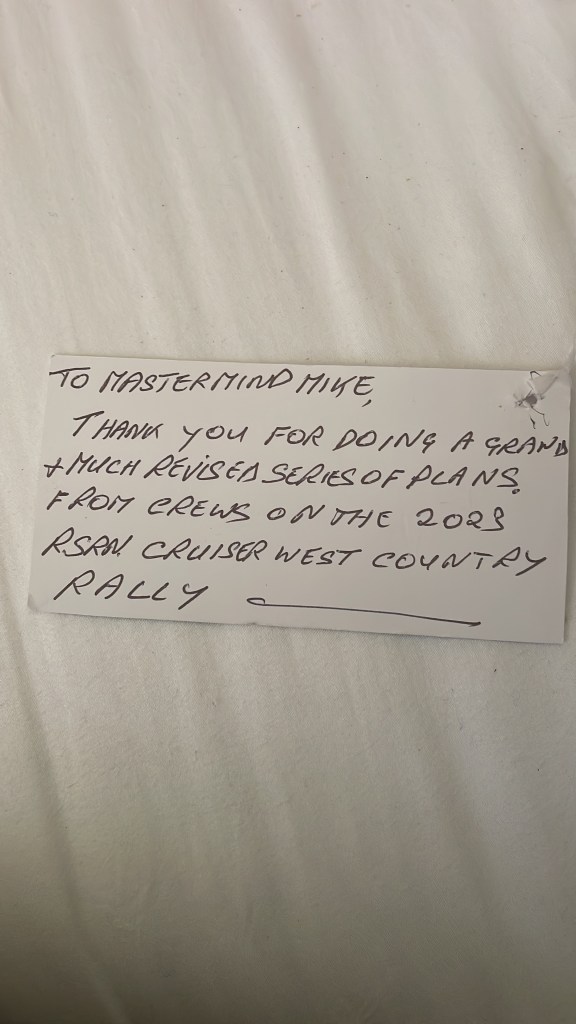 TO MASTERMIND MIKE,
THANK YOU FOR DOING A GRAND
+ MUCH REVISED SERIES OF PLANS.
FROM CREWS ON THE 2023
RSRN. CRUISER WEST COUNTRY
RALLY